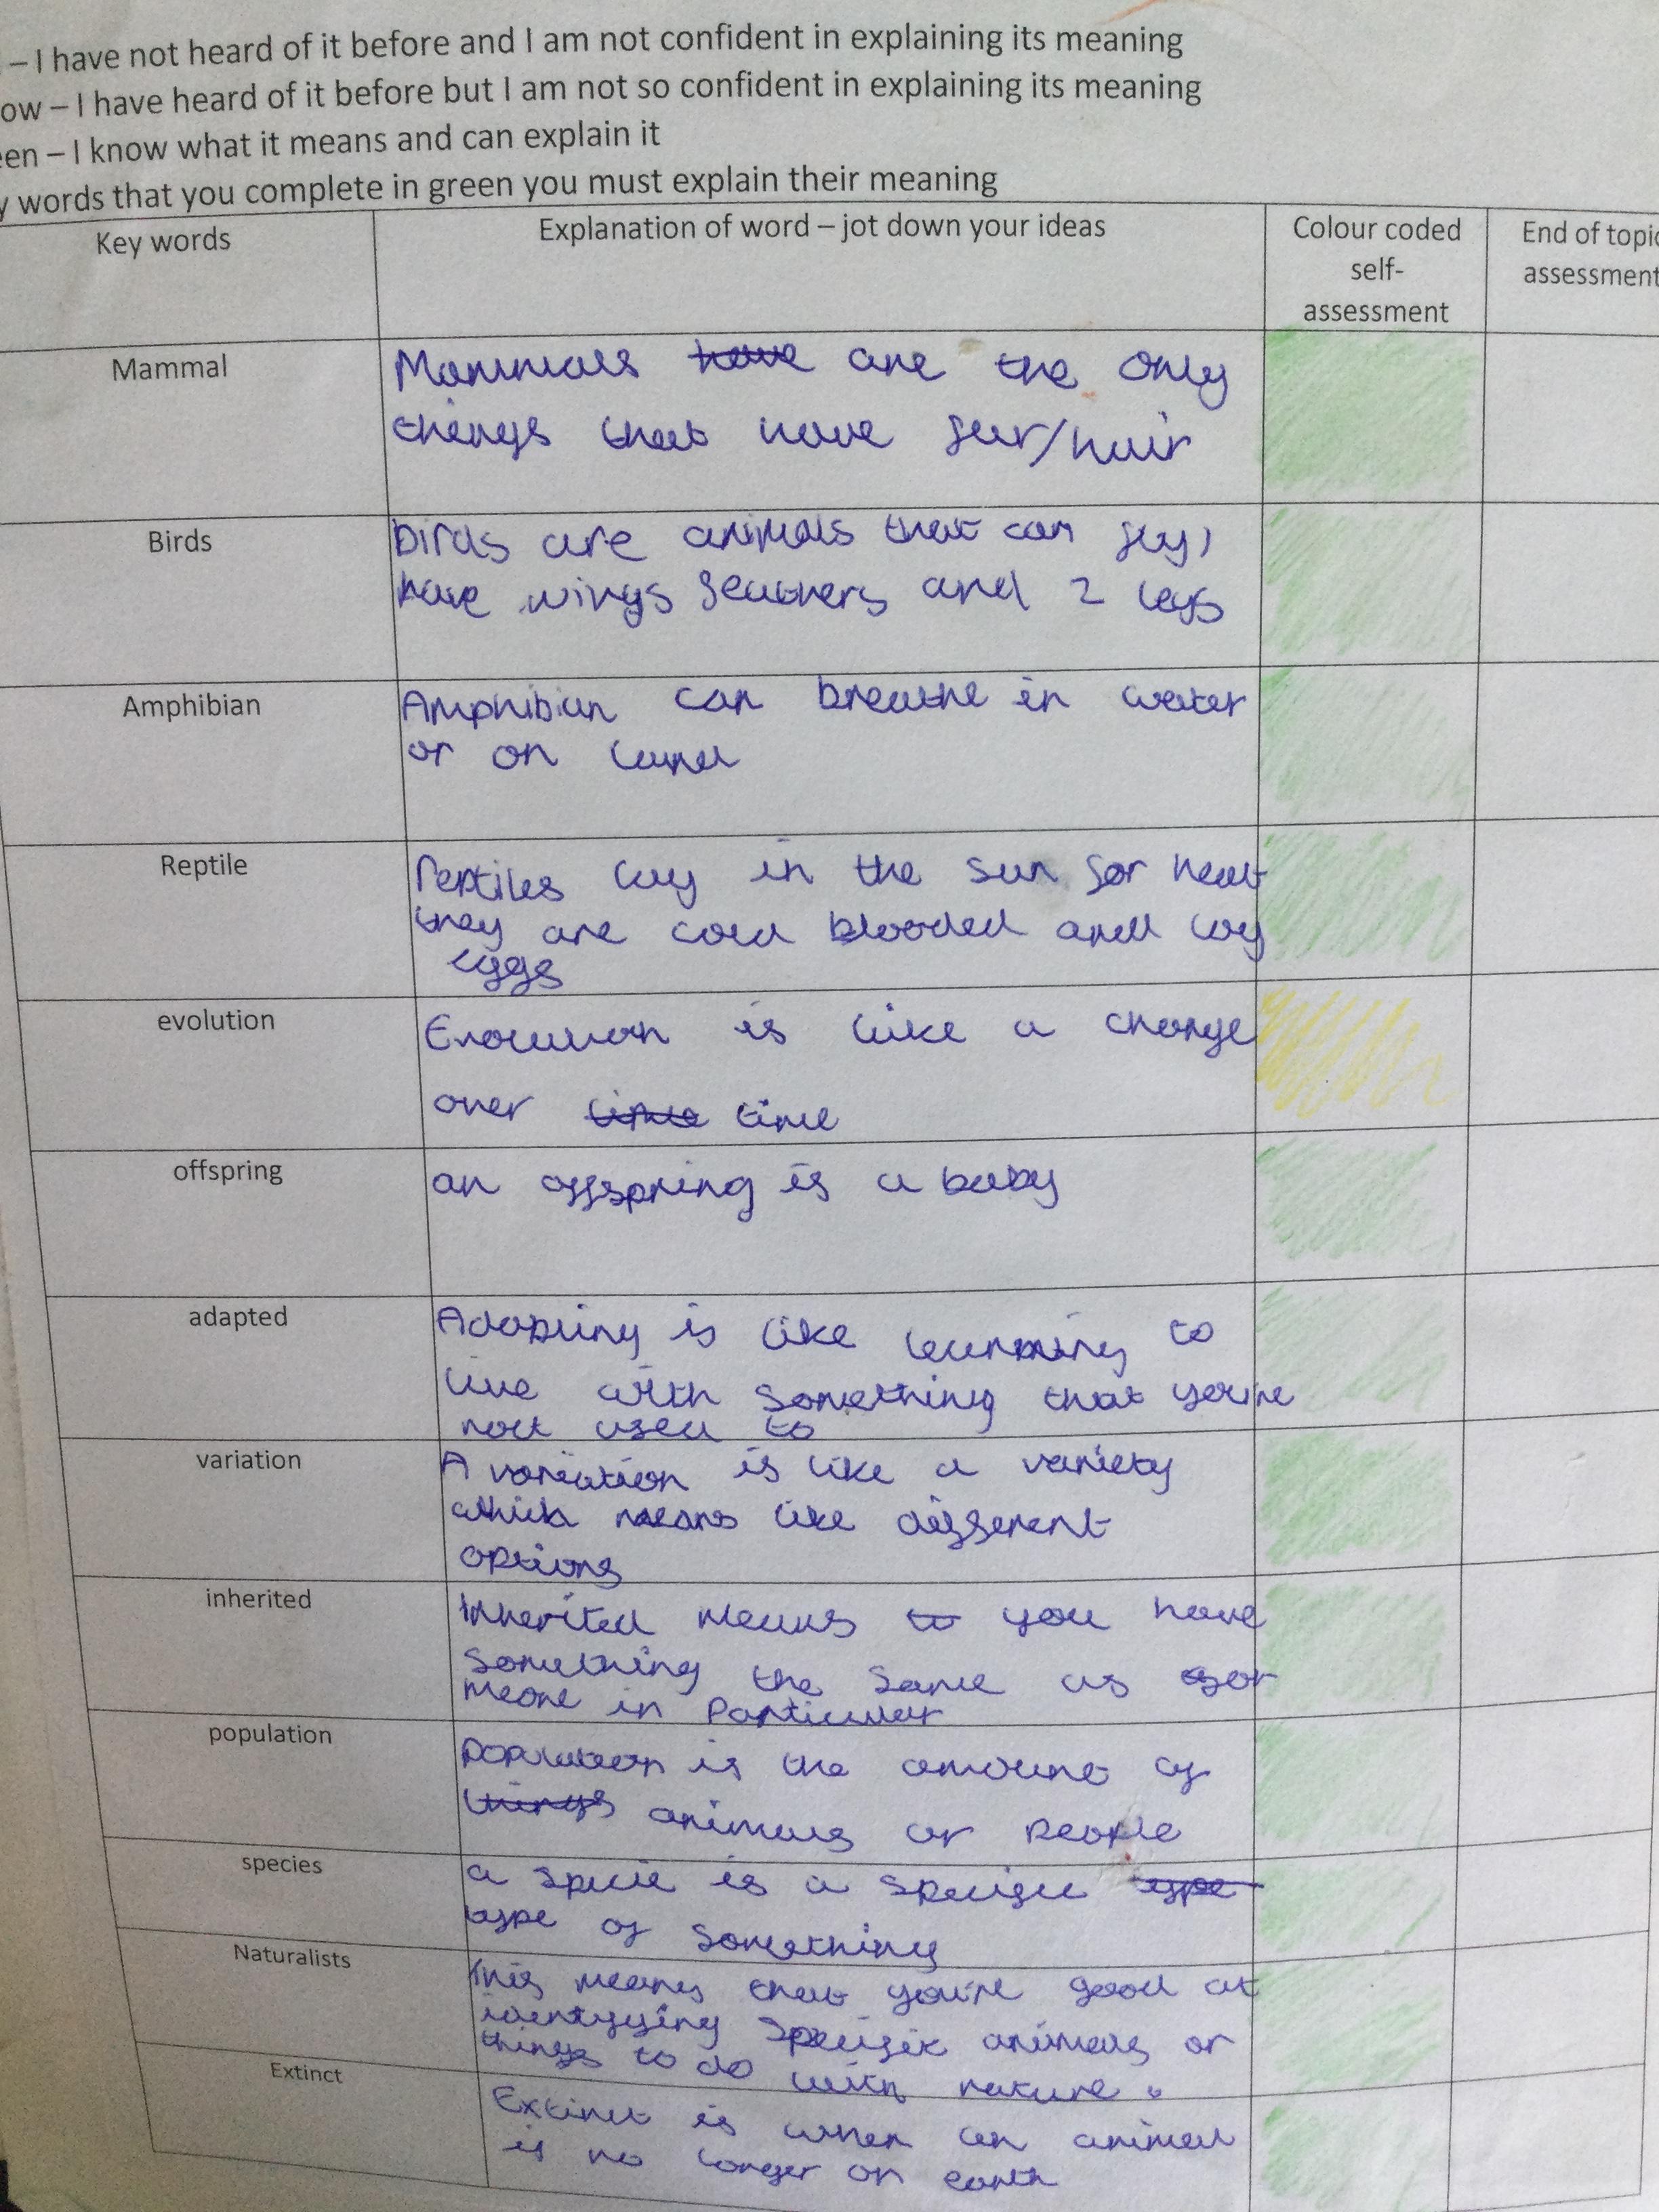 – I have not heard of it before and I am not confident in explaining its meaning
ow – I have heard of it before but I am not so confident in explaining its meaning
een – I know what it means and can explain it
y words that you complete in green you must explain their meaning
Key words
Explanation of word – jot down your ideas
Colour coded
self-
assessment
End of topic
assessment
Mammal
Mammals have are the only
things that have fur/hair
Birds
birds are animals that can fly,
have wings feathers and 2 legs
Amphibian
Amphibian can breathe in water
or on land
Reptile
reptiles lay in the sun for heat
they are cold blooded and lay
eggs
evolution
Evolution is like a change
over time
offspring
an offspring is a baby
adapted
Adapting is like learning to
live with something that you're
not used to
variation
A variation is like a variety
which means like different
options
inherited
Inherited means to you have
something the same as so
meone in particular
population
population is the amount of
things animals or people
species
a specie is a specific type
type of something
Naturalists
This means that you're good at
identifying specific animals or
things to do with nature.
Extinct
Extinct is when an animal
is no longer on earth